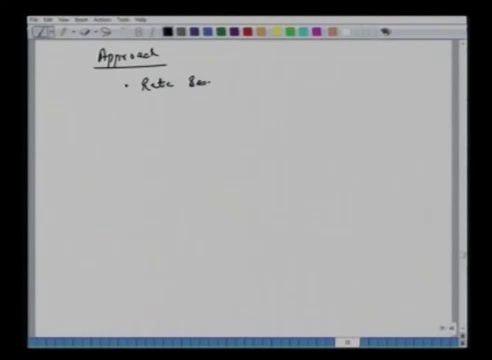 File Edit View Insert Actions Tools Help
Approach
• Rate